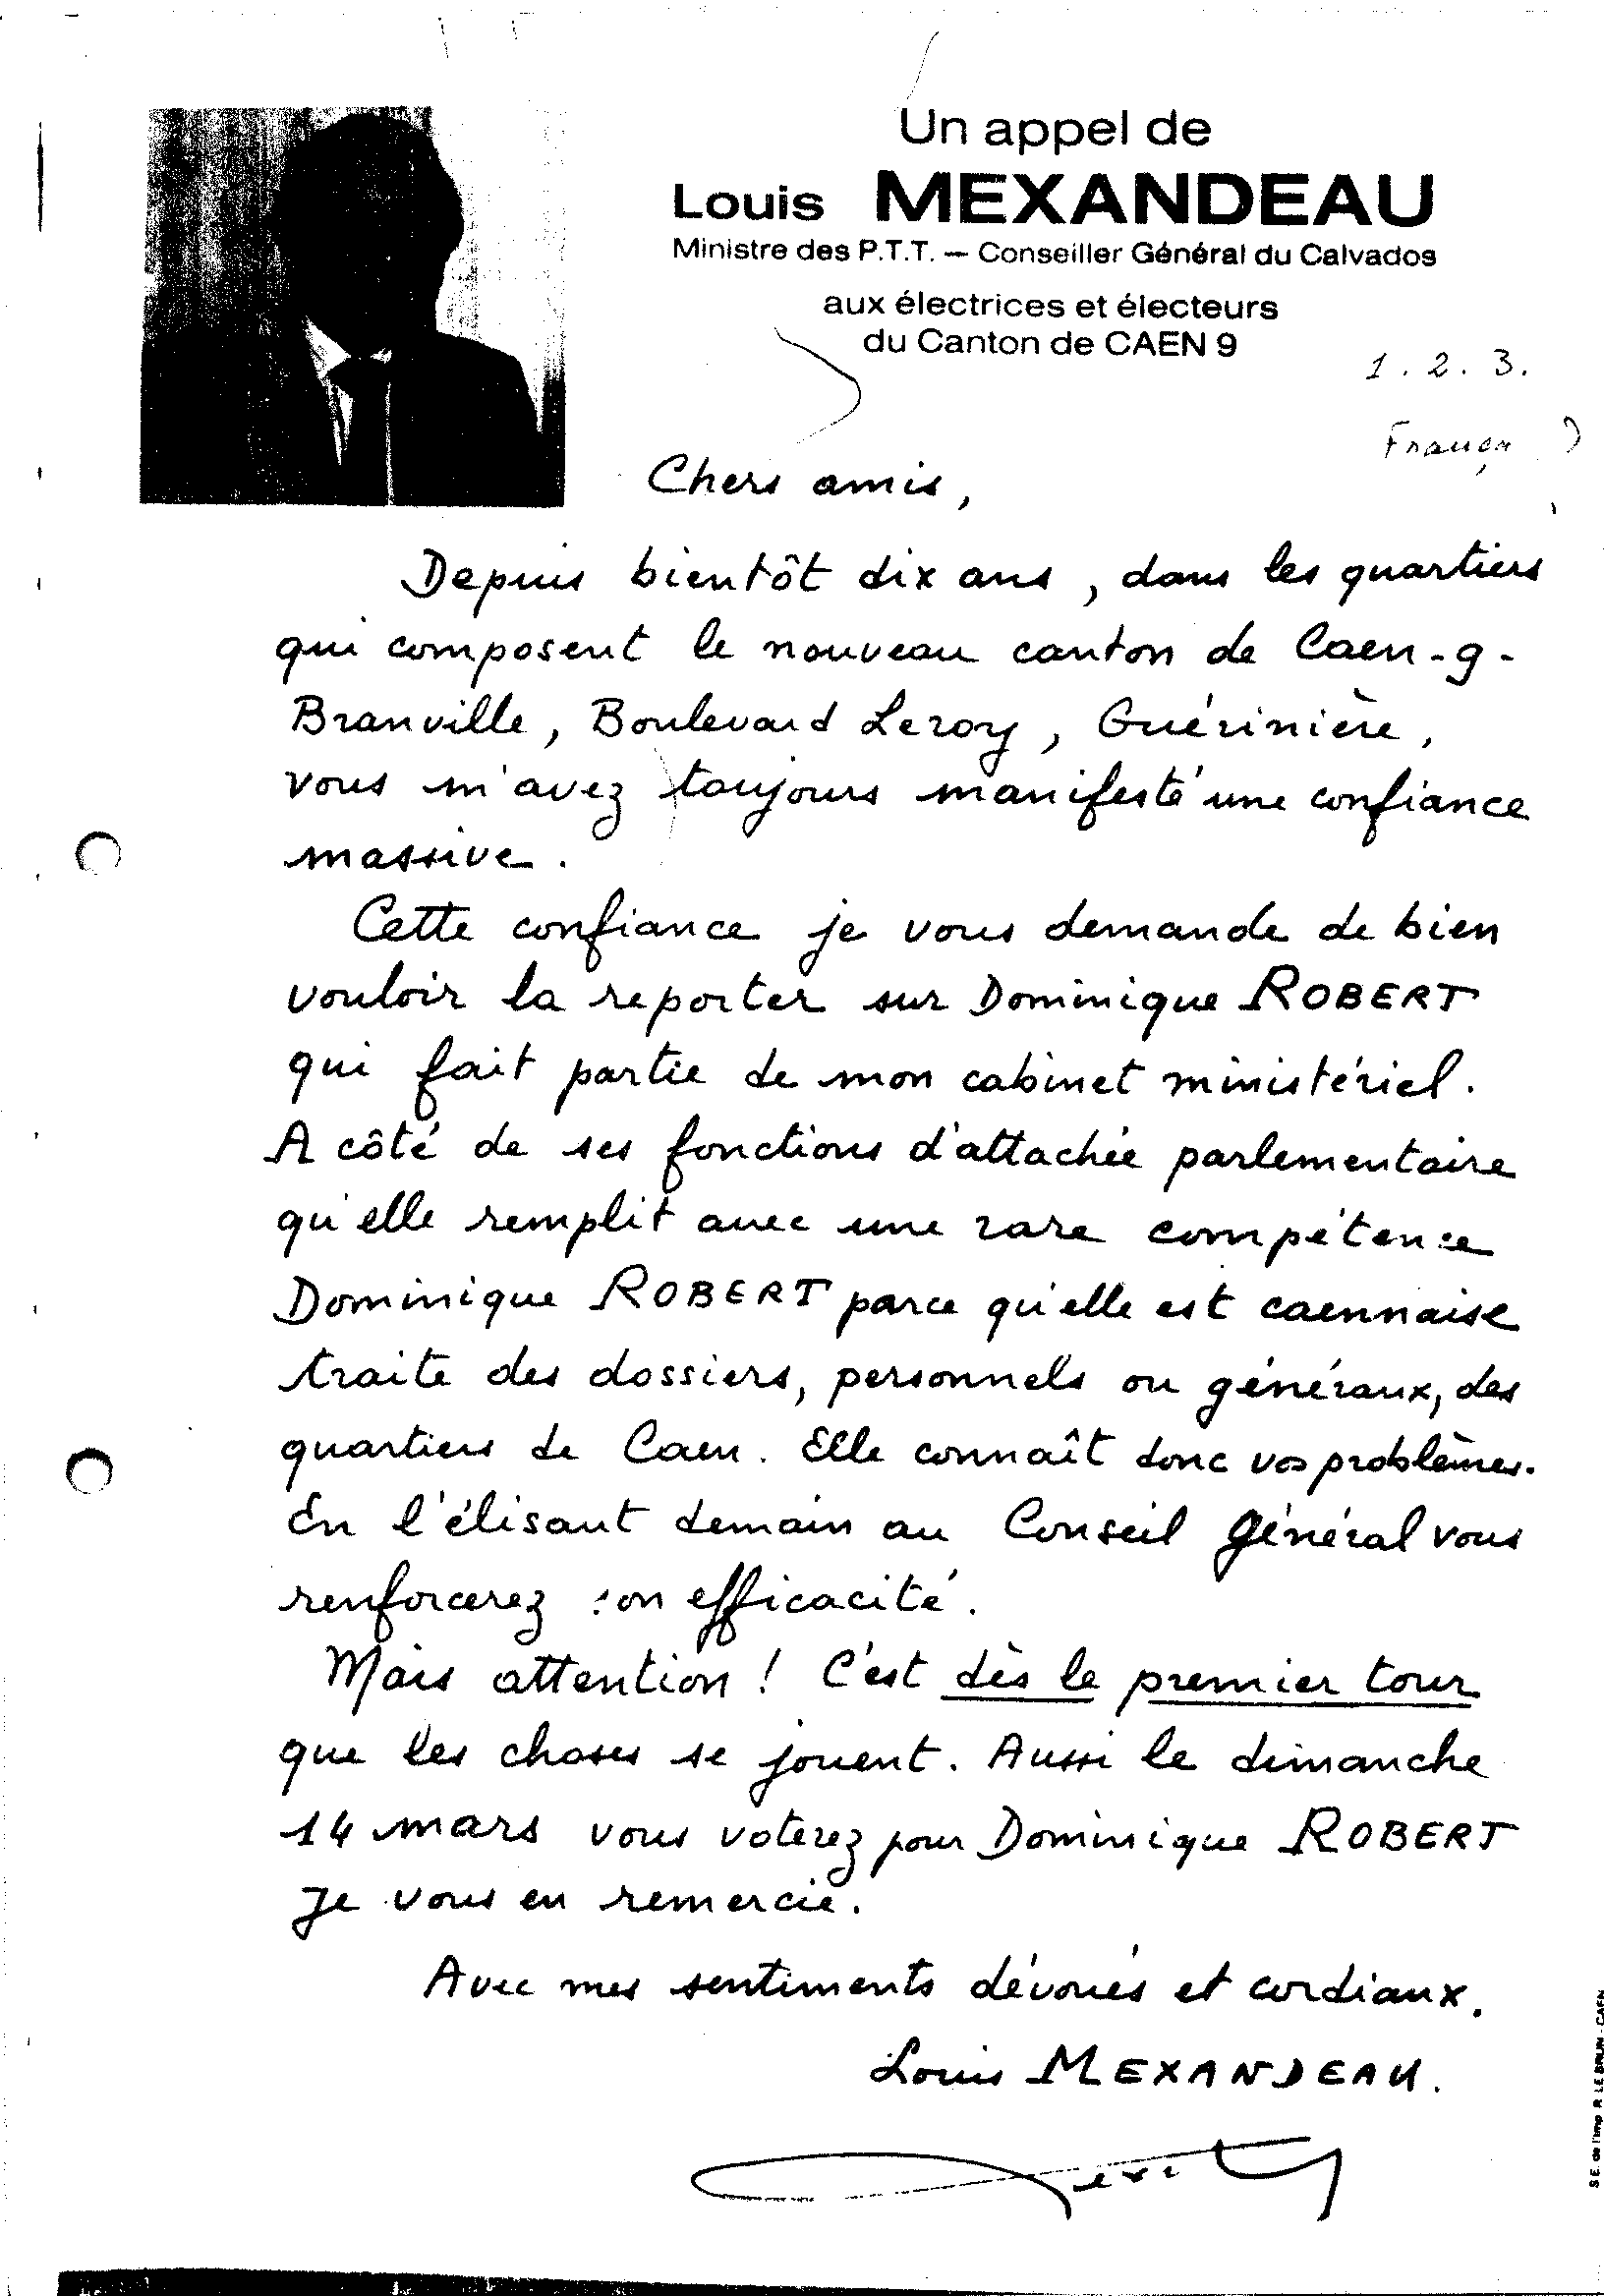 Un appel de
Louis MEXANDEAU
Ministre des P.T.T. — Conseiller Général du Calvados
aux électrices et électeurs
du Canton de CAEN 9
1. 2. 3.
Chers amis,
Depuis bientôt dix ans, dans les quartiers
qui composent le nouveau canton de Caen-9-
Branville, Boulevard Leroy, Guérinière,
vous m'avez toujours manifesté une confiance
massive.
Cette confiance je vous demande de bien
vouloir la reporter sur Dominique ROBERT
qui fait partie de mon cabinet ministériel.
A côté de ses fonctions d'attachée parlementaire
qu'elle remplit avec une rare compétence
Dominique ROBERT parce qu'elle est caennaise
traite des dossiers, personnels ou généraux, des
quartiers de Caen. Elle connaît donc vos problèmes.
En l'élisant demain au Conseil Général vous
renforcerez son efficacité.
Mais attention ! C'est dès le premier tour
que les choses se jouent. Aussi le dimanche
14 mars vous voterez pour Dominique ROBERT
Je vous en remercie.
Avec mes sentiments dévoués et cordiaux.
Louis MEXANDEAU.
S.E. de l'imp. R. LE BRUN - CAEN